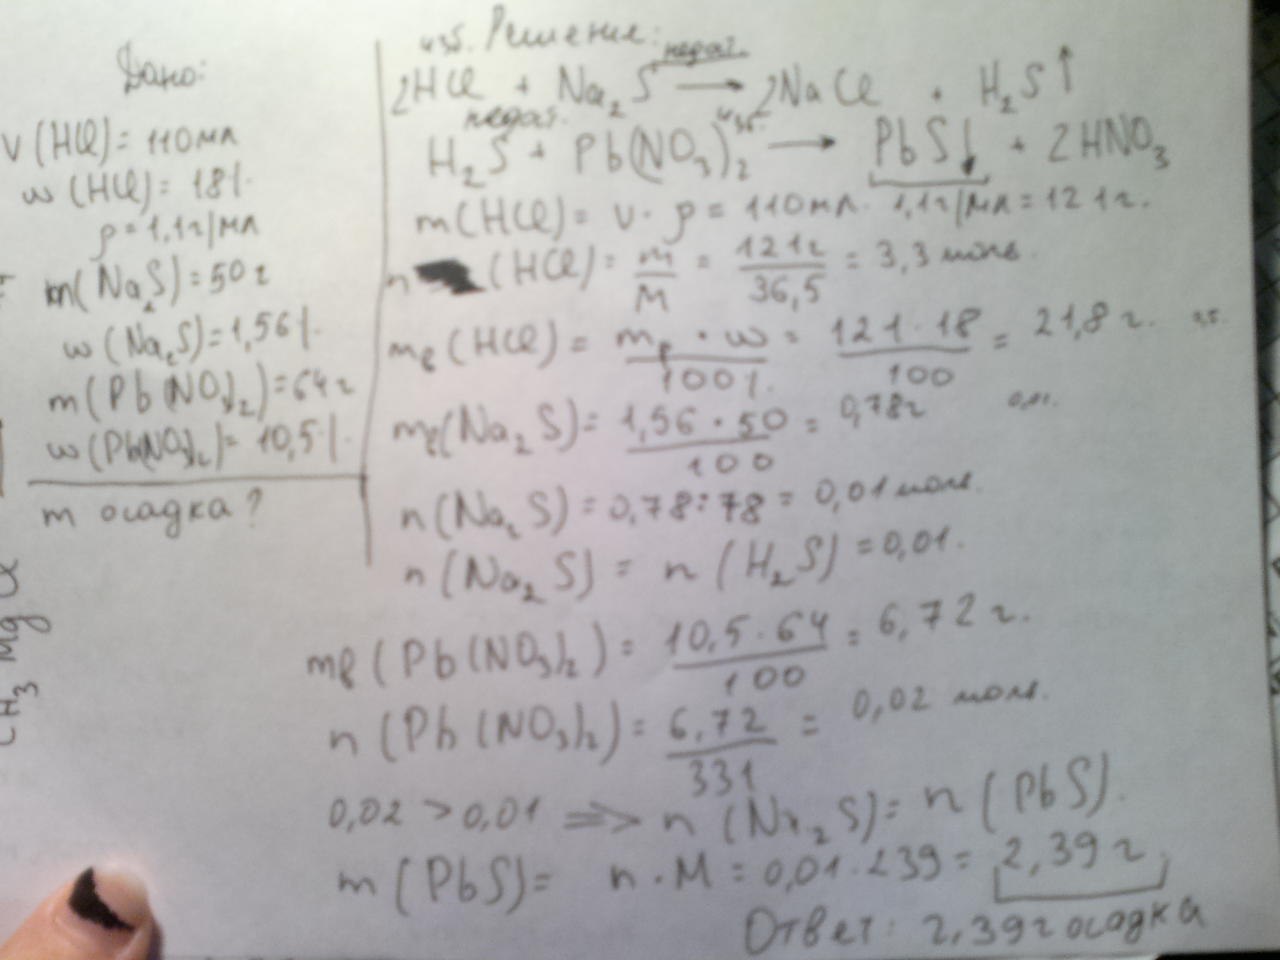 Дано:
V (HCl) = 110 мл
w (HCl) = 18%.
ρ = 1,1 г/мл
m(Na₂S) = 50 г
w (Na₂S) = 1,56%.
m(Pb(NO₃)₂) = 64 г
w (Pb(NO₃)₂) = 10,5%.
m осадка?
CH₃ Mg Cl
изб. Решение: недост.
2HCl + Na₂S → 2NaCl + H₂S↑
недост. изб.
H₂S + Pb(NO₃)₂ → PbS↓ + 2HNO₃
m(HCl) = V · ρ = 110 мл · 1,1 г/мл = 121 г.
n (HCl) = m/M = 121г/36,5 = 3,3 моль.
mв (HCl) = mр · w/100% = 121 · 18/100 = 21,8 г.
mв(Na₂S) = 1,56 · 50/100 = 0,78 г 0,01.
n (Na₂S) = 0,78 : 78 = 0,01 моль.
n (Na₂S) = n (H₂S) = 0,01.
mв (Pb(NO₃)₂) = 10,5 · 64/100 = 6,72 г.
n (Pb(NO₃)₂) = 6,72/331 = 0,02 моль.
0,02 > 0,01 ⇒ n (Na₂S) = n (PbS).
m (PbS) = n · M = 0,01 · 239 = 2,39 г.
Ответ: 2,39 г осадка